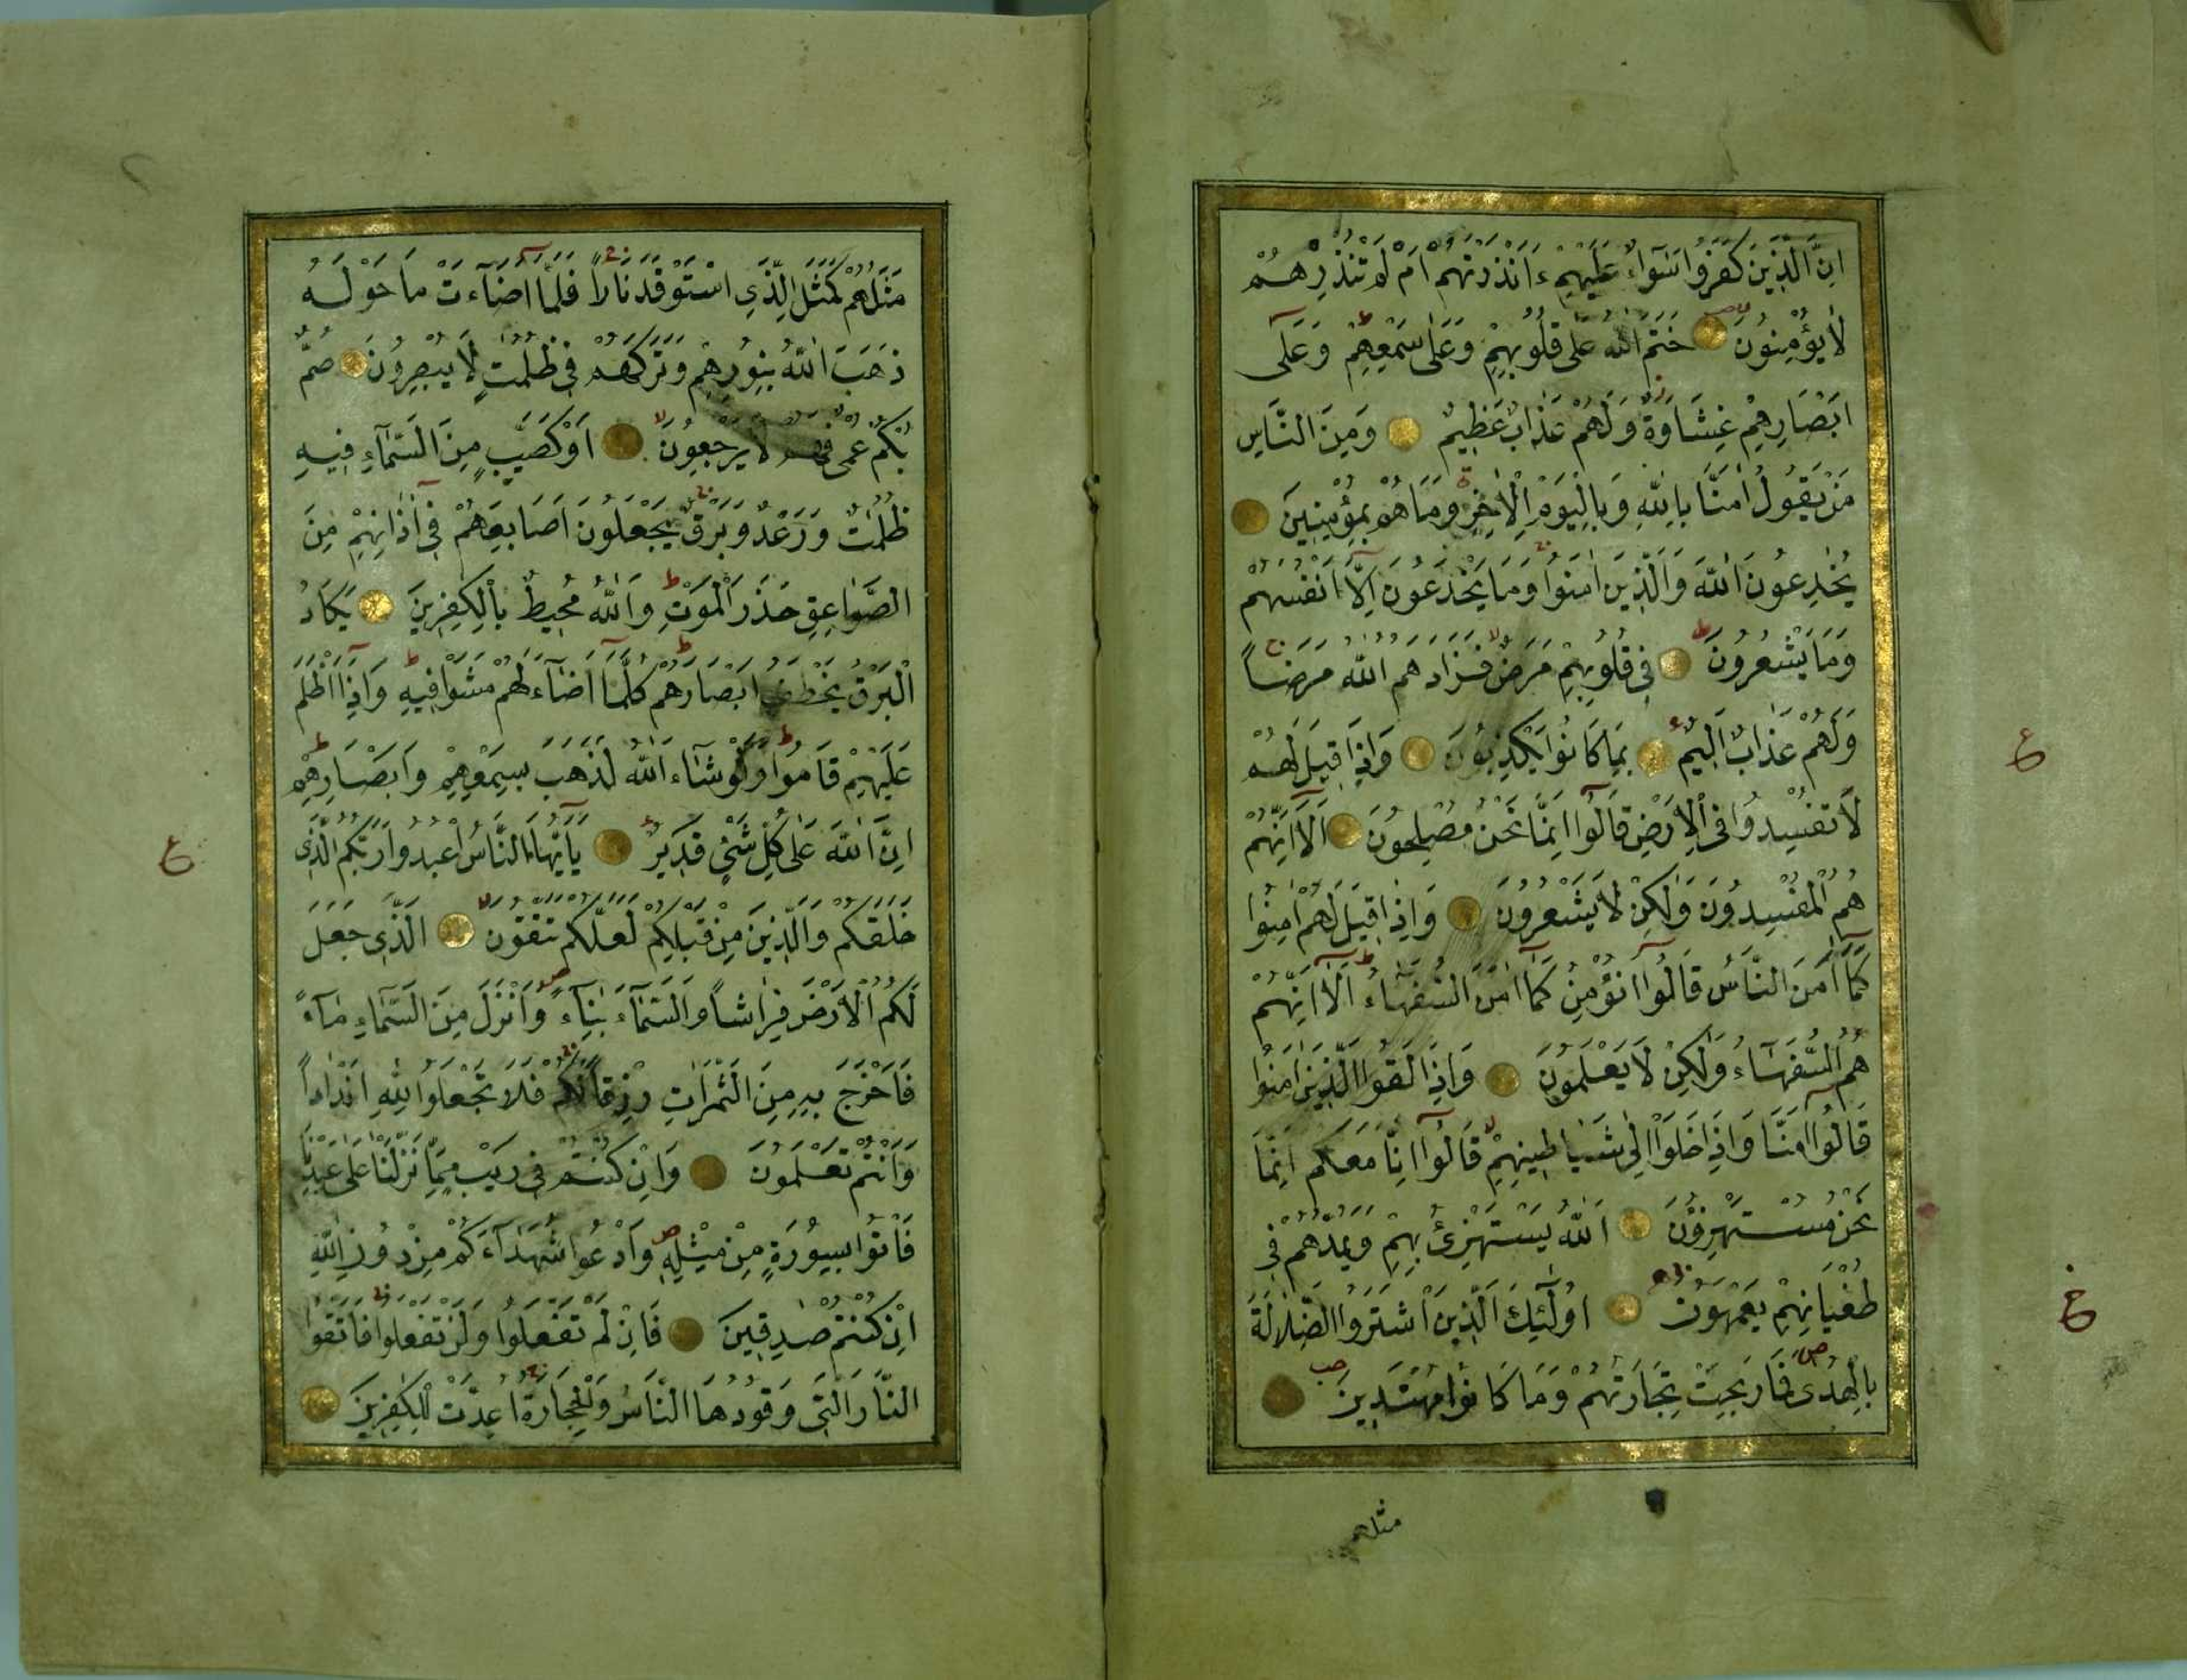 اِنَّ الَّذِينَ كَفَرُوا سَوَآءٌ عَلَيْهِمْ ءَاَنْذَرْتَهُمْ اَمْ لَمْ تُنْذِرْهُمْ
لَا يُؤْمِنُونَ خَتَمَ اللّٰهُ عَلٰى قُلُوبِهِمْ وَعَلٰى سَمْعِهِمْ وَعَلٰٓى
اَبْصَارِهِمْ غِشَاوَةٌ وَلَهُمْ عَذَابٌ عَظِيمٌ وَمِنَ النَّاسِ
مَنْ يَقُولُ اٰمَنَّا بِاللّٰهِ وَبِالْيَوْمِ الْاٰخِرِ وَمَا هُمْ بِمُؤْمِنِينَ
يُخَادِعُونَ اللّٰهَ وَالَّذِينَ اٰمَنُوا وَمَا يَخْدَعُونَ اِلَّٓا اَنْفُسَهُمْ
وَمَا يَشْعُرُونَ فِى قُلُوبِهِمْ مَرَضٌ فَزَادَهُمُ اللّٰهُ مَرَضاً
وَلَهُمْ عَذَابٌ اَلِيمٌ بِمَا كَانُوا يَكْذِبُونَ وَاِذَا قِيلَ لَهُمْ
لَا تُفْسِدُوا فِى الْاَرْضِ قَالُٓوا اِنَّمَا نَحْنُ مُصْلِحُونَ اَلَٓا اِنَّهُمْ
هُمُ الْمُفْسِدُونَ وَلٰكِنْ لَا يَشْعُرُونَ وَاِذَا قِيلَ لَهُمْ اٰمِنُوا
كَمَٓا اٰمَنَ النَّاسُ قَالُٓوا اَنُؤْمِنُ كَمَٓا اٰمَنَ السُّفَهَٓاءُ اَلَٓا اِنَّهُمْ
هُمُ السُّفَهَٓاءُ وَلٰكِنْ لَا يَعْلَمُونَ وَاِذَا لَقُوا الَّذِينَ اٰمَنُوا
قَالُٓوا اٰمَنَّا وَاِذَا خَلَوْا اِلٰى شَيَاطِينِهِمْ قَالُٓوا اِنَّا مَعَكُمْ اِنَّمَا
نَحْنُ مُسْتَهْزِؤُنَ اَللّٰهُ يَسْتَهْزِئُ بِهِمْ وَيَمُدُّهُمْ فِى
طُغْيَانِهِمْ يَعْمَهُونَ اُولٰٓئِكَ الَّذِينَ اشْتَرَوُا الضَّلَالَةَ
بِالْهُدٰى فَمَا رَبِحَتْ تِجَارَتُهُمْ وَمَا كَانُوا مُهْتَدِينَ
مثلهم
ع
مَثَلُهُمْ كَمَثَلِ الَّذِى اسْتَوْقَدَ نَاراً فَلَمَّٓا اَضَٓاءَتْ مَا حَوْلَهُ
ذَهَبَ اللّٰهُ بِنُورِهِمْ وَتَرَكَهُمْ فِى ظُلُمٰتٍ لَا يُبْصِرُونَ صُمٌّ
بُكْمٌ عُمْىٌ فَهُمْ لَا يَرْجِعُونَ اَوْ كَصَيِّبٍ مِنَ السَّمَٓاءِ فِيهِ
ظُلُمَاتٌ وَرَعْدٌ وَبَرْقٌ يَجْعَلُونَ اَصَابِعَهُمْ فِٓى اٰذَانِهِمْ مِنَ
الصَّوَاعِقِ حَذَرَ الْمَوْتِ وَاللّٰهُ مُحِيطٌ بِالْكٰفِرِينَ يَكَادُ
الْبَرْقُ يَخْطَفُ اَبْصَارَهُمْ كُلَّمَٓا اَضَٓاءَ لَهُمْ مَشَوْا فِيهِ وَاِذَٓا اَظْلَمَ
عَلَيْهِمْ قَامُوا وَلَوْ شَٓاءَ اللّٰهُ لَذَهَبَ بِسَمْعِهِمْ وَاَبْصَارِهِمْ
اِنَّ اللّٰهَ عَلٰى كُلِّ شَىْءٍ قَدِيرٌ يَٓا اَيُّهَا النَّاسُ اعْبُدُوا رَبَّكُمُ الَّذِى
خَلَقَكُمْ وَالَّذِينَ مِنْ قَبْلِكُمْ لَعَلَّكُمْ تَتَّقُونَ اَلَّذِى جَعَلَ
لَكُمُ الْاَرْضَ فِرَاشاً وَالسَّمَٓاءَ بِنَٓاءً وَاَنْزَلَ مِنَ السَّمَٓاءِ مَٓاءً
فَاَخْرَجَ بِهِ مِنَ الثَّمَرَاتِ رِزْقاً لَكُمْ فَلَا تَجْعَلُوا لِلّٰهِ اَنْدَاداً
وَاَنْتُمْ تَعْلَمُونَ وَاِنْ كُنْتُمْ فِى رَيْبٍ مِمَّا نَزَّلْنَا عَلٰى عَبْدِنَا
فَاْتُوا بِسُورَةٍ مِنْ مِثْلِهِ وَادْعُوا شُهَدَٓاءَكُمْ مِنْ دُونِ اللّٰهِ
اِنْ كُنْتُمْ صٰدِقِينَ فَاِنْ لَمْ تَفْعَلُوا وَلَنْ تَفْعَلُوا فَاتَّقُوا
النَّارَ الَّتِى وَقُودُهَا النَّاسُ وَالْحِجَارَةُ اُعِدَّتْ لِلْكٰفِرِينَ
ع